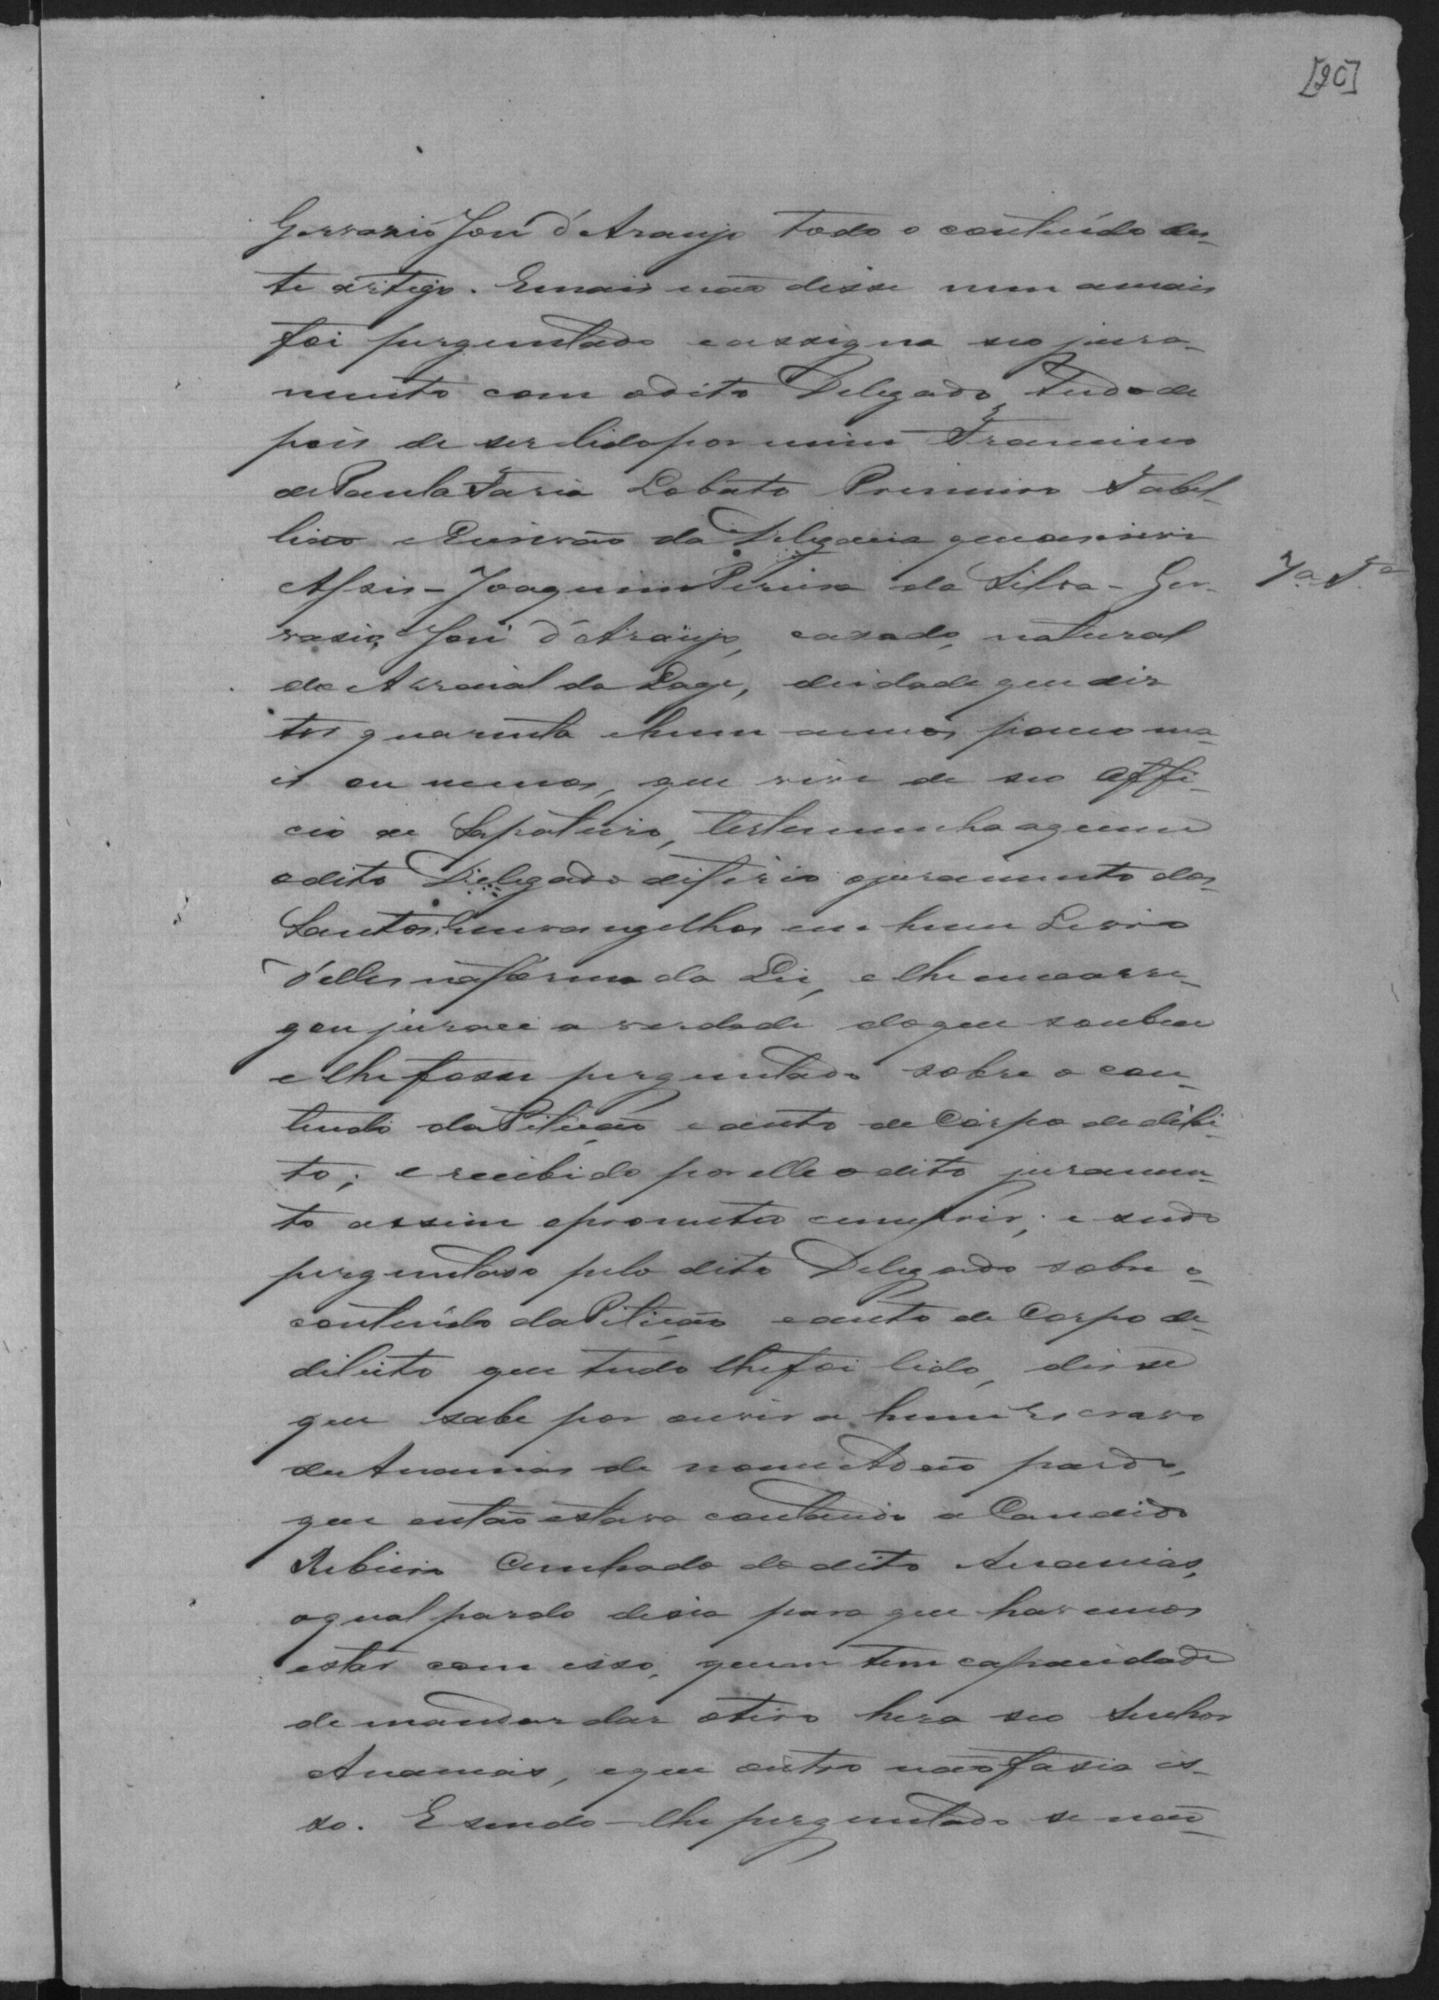 [20]
Gervazio José d'Araujo todo o conteúdo des-
te artigo. Emais não disse nem amais
foi perguntado eassigna seo jura-
mento com odito Delegado, tudo de
pois de ser lido por mim Francisco
de Paula Faria Lobato Primeiro Tabel-
lião e Escrivão da Delegacia que escrevi
Assis - Joaquim Pereira da Silva - Ger-
7.ª T.ª
vasio José d'Araujo, casado, natural
do Arraial da Lage, deidade que dis
ter quarenta ehum annos pouco ma-
is ou menos, que vive de seo Offi-
cio de Sapateiro, testemunha aquem
odito Delegado diferio ojuramento dos
Santos Envangelhos em hum Livro
d'elles naforma da Lei, e lhe encarre-
gou jurace a verdade doque soubece
e lhe fosse perguntado sobre o con-
teudo da Petição eauto de Corpo de deli-
to; e recebido por elle o dito juramen-
to assim oprometeo cumprir; e sendo
perguntado pelo dito Delegado sobre o
conteúdo da Petição eauto de Corpo de
delicto que tudo lhe foi lido, disse
que sabe por ouvir a hum Escravo
de Ananias de nome Adão pardo,
que então estava contando a Candido
Ribeiro Cunhado do dito Ananias,
oqual pardo desia para que havemos
estar com isso, quem tem capacidade
de mandar dar otiro hera seo Senhor
Ananias, eque outro não fasia is-
so. E sendo-lhe perguntado se não